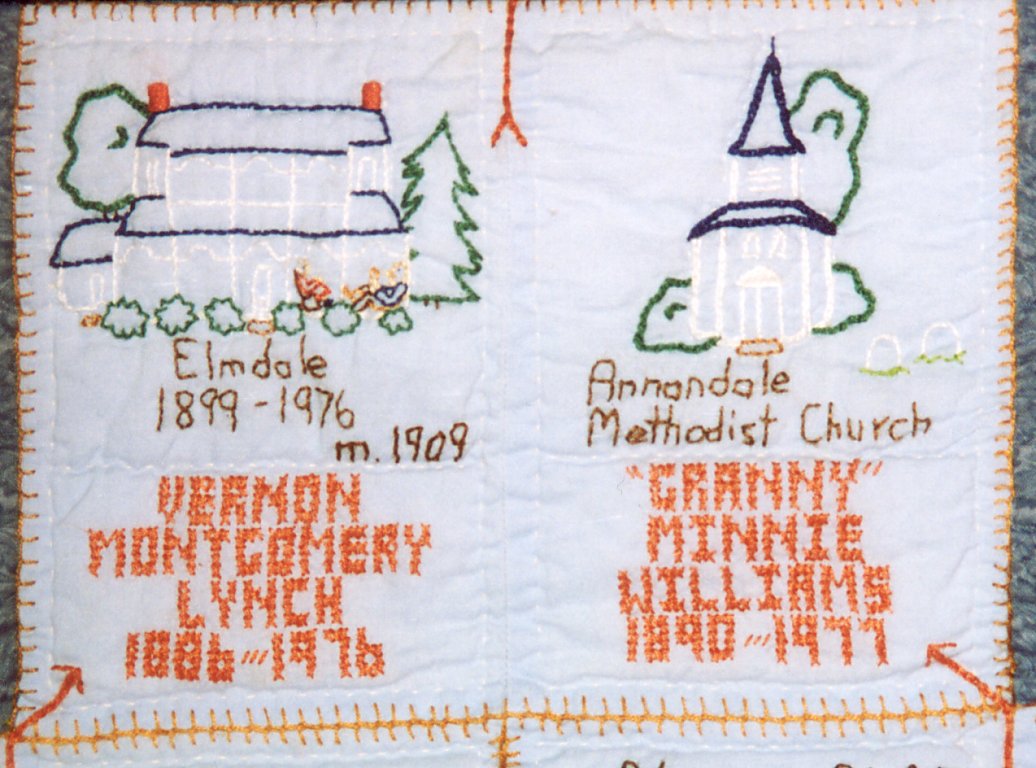 Elmdale
1899-1976
m. 1909
VERMON
MONTGOMERY
LYNCH
1886---1976
Annandale
Methodist Church
"GRANNY"
MINNIE
WILLIAMS
1890---1977